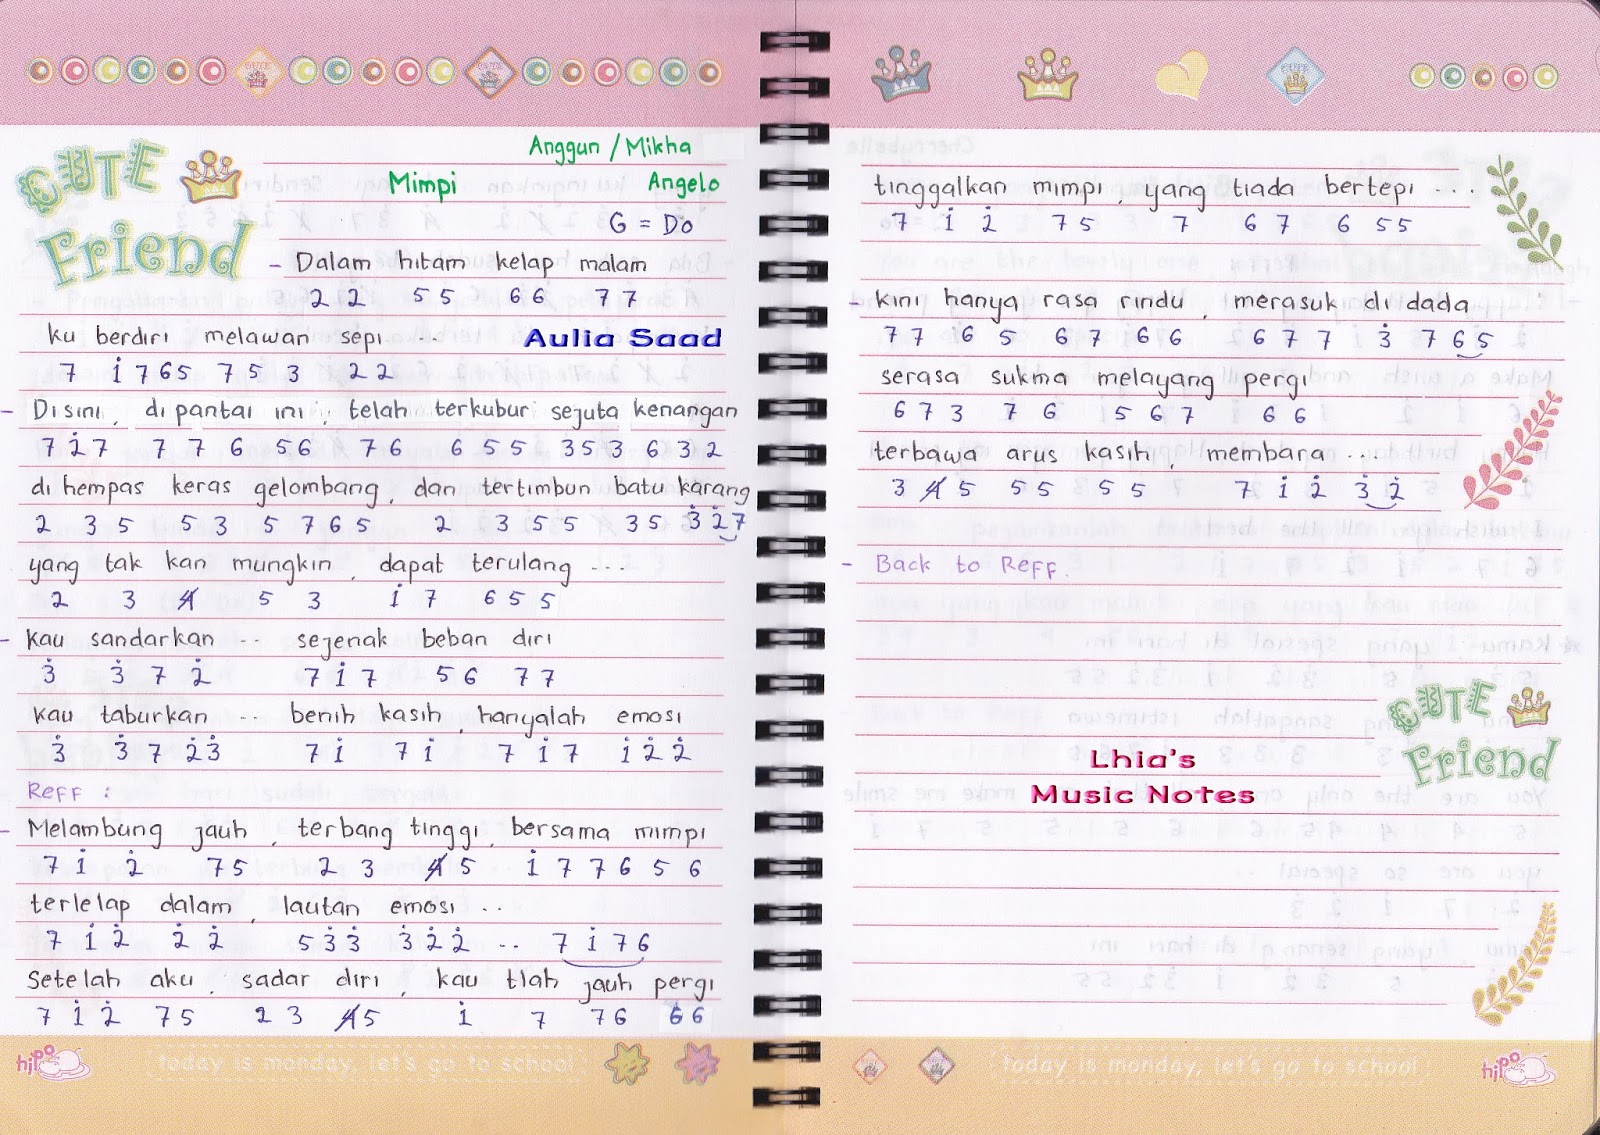 CUTE Friend
Anggun / Mikha
Mimpi Angelo
G = Do
- Dalam hitam kelap malam
2 2̇ 5 5 6 6 7 7
ku berdiri melawan sepi ...
Aulia Saad
7 1̇ 7 6 5 7 5 3 2 2
- Disini, dipantai ini, telah terkubur sejuta kenangan
7 2̇ 7 7 7 6 5 6 7 6 6 5 5 3 5 3 6 3 2
dihempas keras gelombang, dan tertimbun batu karang
2 3 5 5 3 5 7 6 5 2 3 5 5 3 5 3̇ 2̇ 7
yang tak kan mungkin, dapat terulang ...
2 3 4̸ 5 3 1̇ 7 6 5 5
- kau sandarkan ... sejenak beban diri
3̇ 3̇ 7 2̇ 7 1̇ 7 5 6 7 7
kau taburkan ... benih kasih, hanyalah emosi
3̇ 3̇ 7 2̇ 3̇ 7 1̇ 7 1̇ 7 1̇ 7 1̇ 2̇ 2̇
Reff :
- Melambung jauh, terbang tinggi, bersama mimpi
7 1̇ 2̇ 7 5 2 3 4̸ 5 1̇ 7 7 6 5 6
terlelap dalam, lautan emosi ..
7 1̇ 2̇ 2̇ 2̇ 5 3̇ 3̇ 3̇ 2̇ 2̇ .. 7 1̇ 7 6
Setelah aku, sadar diri, kau tlah jauh pergi
7 1̇ 2̇ 7 5 2 3 4̸ 5 1̇ 7 7 6 6 6
hipo today is monday, let's go to school
tinggalkan mimpi, yang tiada bertepi ...
7 1̇ 2̇ 7 5 7 6 7 6 5 5
- kini hanya rasa rindu, merasuk di dada
7 7 6 5 6 7 6 6 6 7 7 7 3̇ 7 6 5
serasa sukma melayang pergi
6 7 3 7 6 5 6 7 6 6
terbawa arus kasih, membara ...
3 4̸ 5 5 5 5 5 7 1̇ 2̇ 3̇ 2̇
- Back to Reff.
CUTE Friend
Lhia's
Music Notes
today is monday, let's go to school hipo